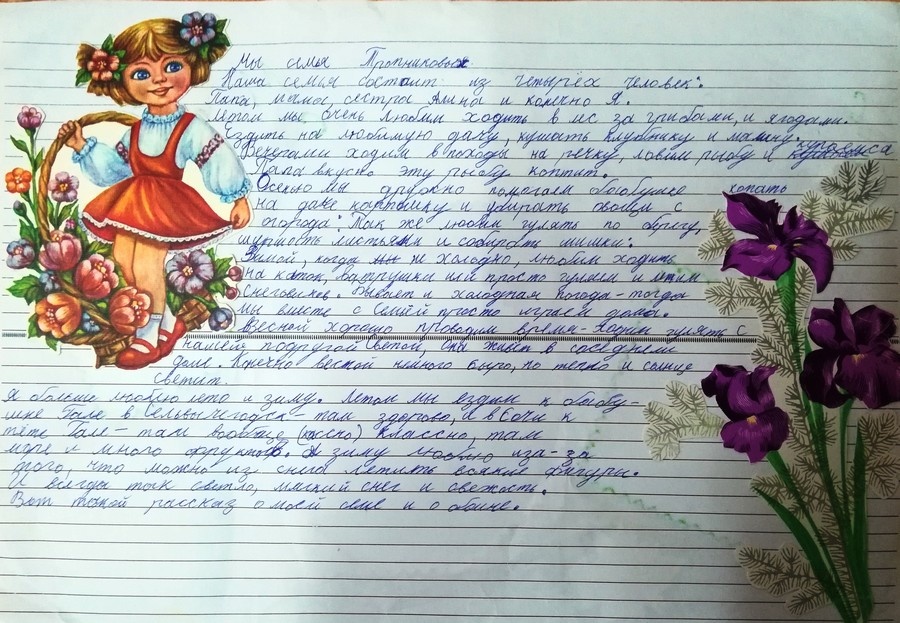 Мы семья Тропниковых
Наша семья состоит из четырёх человек:
Папа, мама, сестра Алина и конечно Я.
Летом мы очень любим ходить в лес за грибами, и ягодами.
Ездить на любимую дачу, кушать клубнику и малину.
Вечерами ходим в походы на речку, ловим рыбу и
Папа вкусно эту рыбу коптит.
Осенью мы дружно помогаем бабушке копать
на даче картошку и убирать овощи с
огорода. Так же любим гулять по берегу,
шуршать листьями и собирать шишки.
Зимой, когда не холодно, любим ходить
на каток, ватрушки или просто гуляем и лепим
снеговиков. Бывает и холодная погода - тогда
мы вместе с семьёй просто играем дома.
Весной хорошо проводим время - ходим гулять с
подругой Светой, она живёт в соседнем
доме. Конечно весной немного сыро, но тепло и солнце
светит.
Я больше люблю лето и зиму. Летом мы ездим к бабу-
шке Гале в Сольвычегодск - там здорово, и в Сочи к
тёте Гале - там вообще (классно) классно, там
море и много фруктов. А зиму люблю из-за
того, что можно из снега лепить всякие фигуры.
И всегда так светло, мягкий снег и свежесть.
Вот такой рассказ о моей семье и о